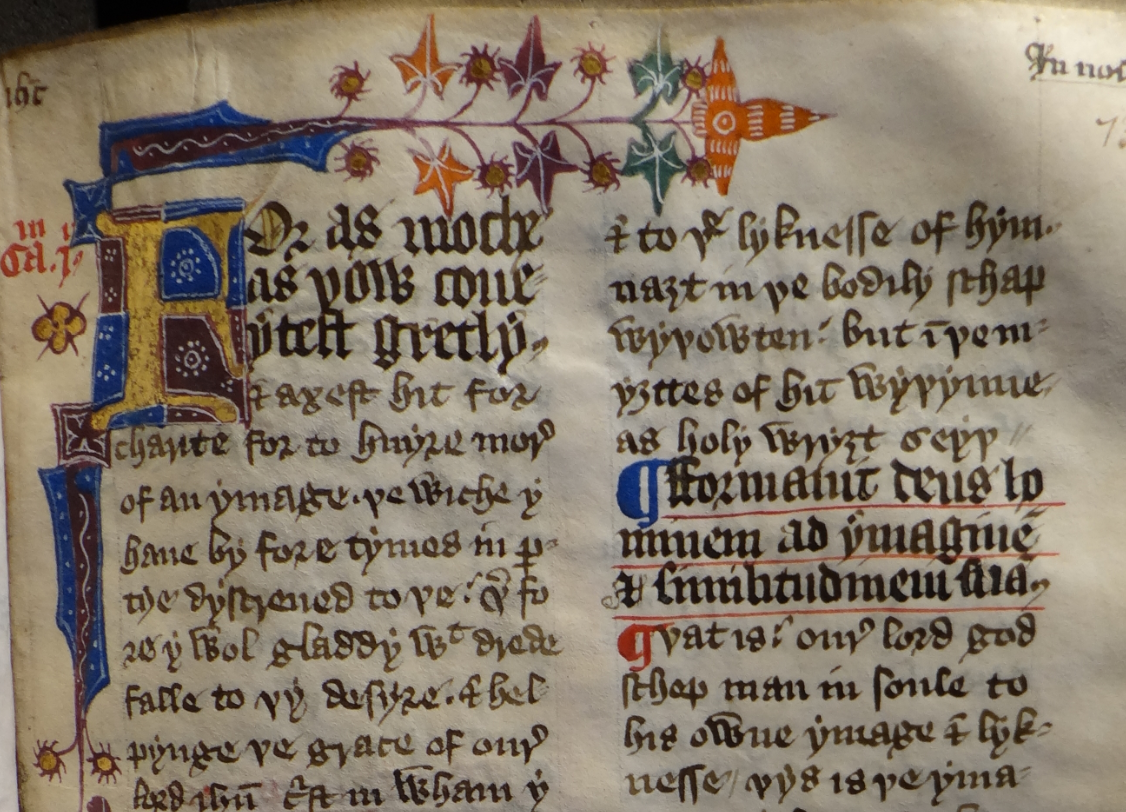 ihc̄
In noī
Ca. i.
For as moche
as þow coue-
ytest gretly.
& axest hit for
charite for to huyre morᵉ
of an ymage. þe wiche y
haue by fore tymes in p-
tye dyscryued to þe: þᵉ fo
re y wol gladdy wᵗ drede
falle to þy desyre. & hel-
pynge þe grace of ourᵉ
lord ihū c̄st in wham y
& to þᵉ lyknesse of hym.
naȝt in þe bodily schap
wyþowten: but ī þe m-
yȝttes of hit wyþynne.
as holy wryȝt seyþ //
¶ fformauit deus ho
minem ad ymaginē
& similitudinem suā.
¶ þat is: ourᵉ lord god
schep man in soule to
his owne ymage & lyk-
nesse / þys is þe yma-